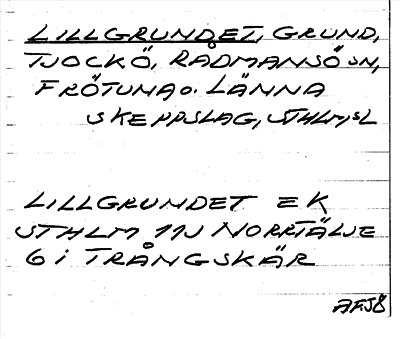 LILLGRUNDET, GRUND,
TJOCKÖ, RÅDMANSÖ SN,
FRÖTUNA O. LÄNNA
SKEPPSLAG, STHLMSL
LILLGRUNDET EK
STHLM 11J NORRTÄLJE
6 i TRÅNGSKÄR
AFSÖ